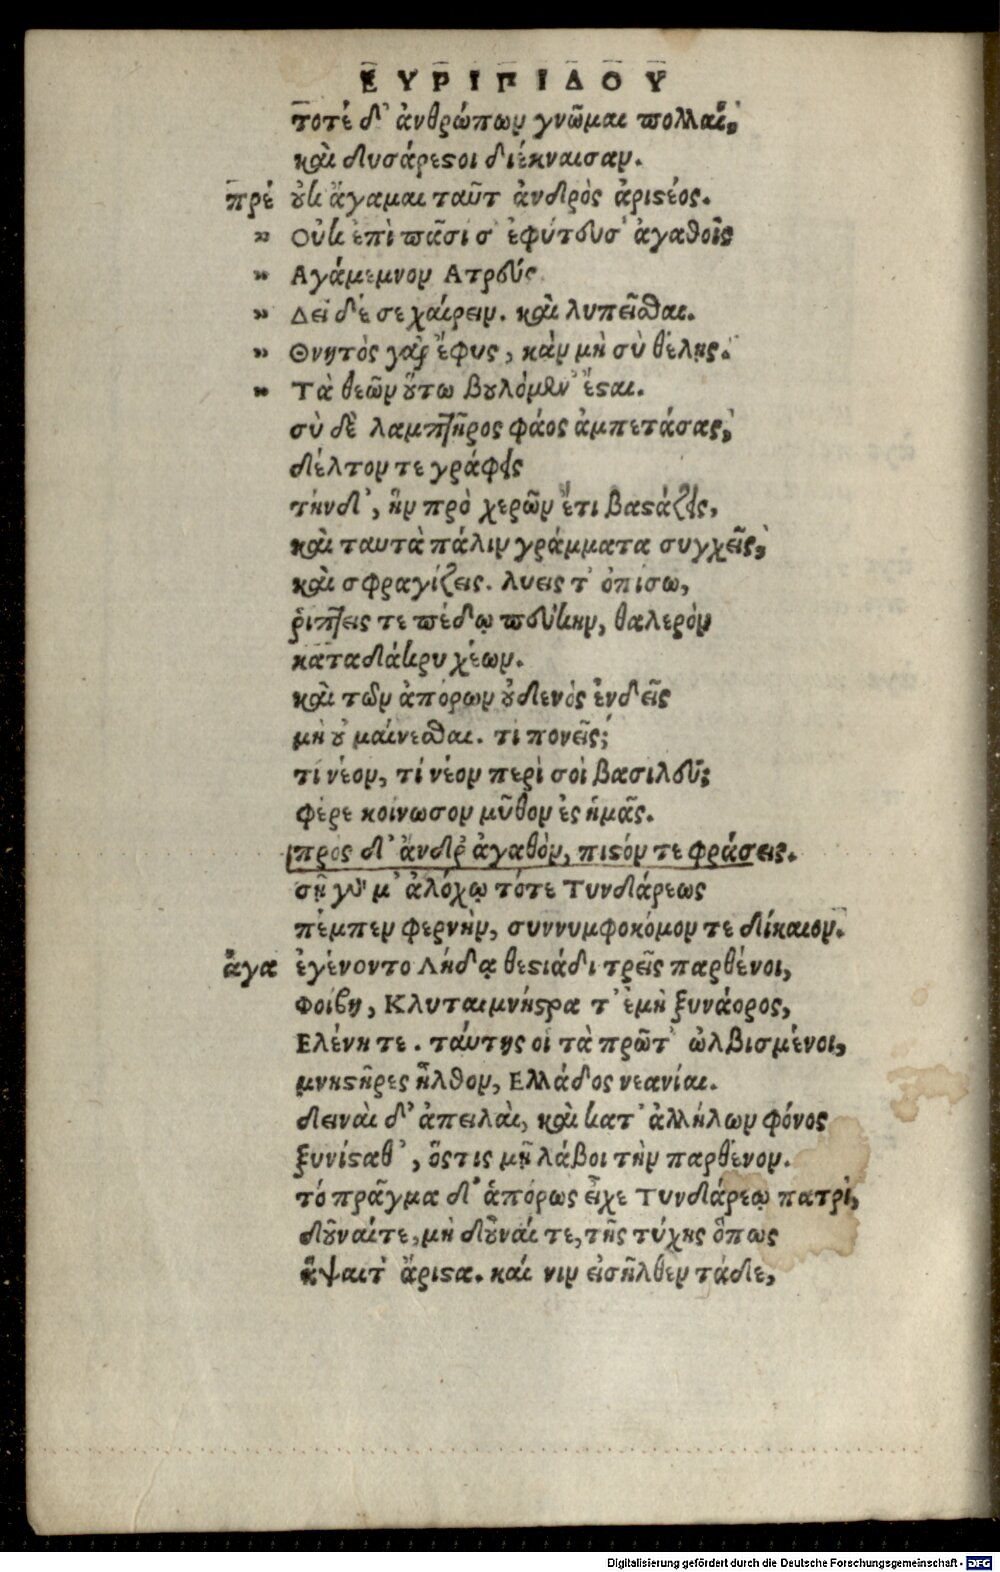 ΕΥΡΙΠΙΔΟΥ
τοτέ δ' ἀνθρώπων γνῶμαι πολλαὶ,
καὶ δυσάρεστοι διέκναισαν.
πρέ οὐκ ἄγαμαι ταῦτ ἀνδρὸς ἀριστέος.
" Οὐκ ἐπὶ πᾶσι σ' ἐφύτευσ' ἀγαθοῖς
" Αγάμεμνον Ατρεύς
" Δεῖ δέ σε χαίρειν. καὶ λυπεῖσθαι.
" Θνητὸς γὰρ ἔφυς, κἀν μὴ σὺ θέλῃς.
" Τὰ θεῶν οὕτω βουλόμεν' ἔσται.
σὺ δὲ λαμπτῆρος φάος ἀμπετάσας,
δέλτον τε γράφεις
τήνδ', ἣν πρὸ χερῶν ἔτι βαστάζεις,
καὶ ταυτὰ πάλιν γράμματα συγχεῖς,
καὶ σφραγίζεις. λυεις τ' ὀπίσω,
ῥιπτεις τε πέδῳ πεύκην, θαλερὸν
καταδάκρυ χέων.
καὶ τῶν ἀπόρων οὐδενὸς ἐνδεῖς
μὴ οὐ μαίνεσθαι. τί πονεῖς;
τί νέον, τί νέον περὶ σοὶ βασιλεῦ;
φέρε κοίνωσον μῦθον ἐς ἡμᾶς.
πρὸς δ' ἄνδρ' ἀγαθὸν, πιστόν τε φράσεις.
σῇ γὰρ μ' ἀλόχῳ τότε Τυνδάρεως
πέμπεν φερνὴν, συννυμφοκόμον τε δίκαιον.
ἀγα ἐγένοντο Λήδᾳ θεστιάδι τρεῖς παρθένοι,
Φοίβη, Κλυταιμνήστρα τ' ἐμὴ ξυνάορος,
Ελένη τε. ταύτης οἱ τὰ πρῶτ' ὠλβισμένοι,
μνηστῆρες ἦλθον, Ελλάδος νεανίαι.
δειναὶ δ' ἀπειλαὶ, καὶ κατ' ἀλλήλων φόνος
ξυνίσταθ', ὅστις μὴ λάβοι τὴν παρθένον.
τό πρᾶγμα δ' ἀπόρως εἶχε Τυνδάρεῳ πατρὶ,
δοῦναί τε, μὴ δοῦναί τε, τῆς τύχης ὅπως
ἥψαιτ' ἄριστα. καί νιν εἰσῆλθεν τάδε,
Digitalisierung gefördert durch die Deutsche Forschungsgemeinschaft - DFG